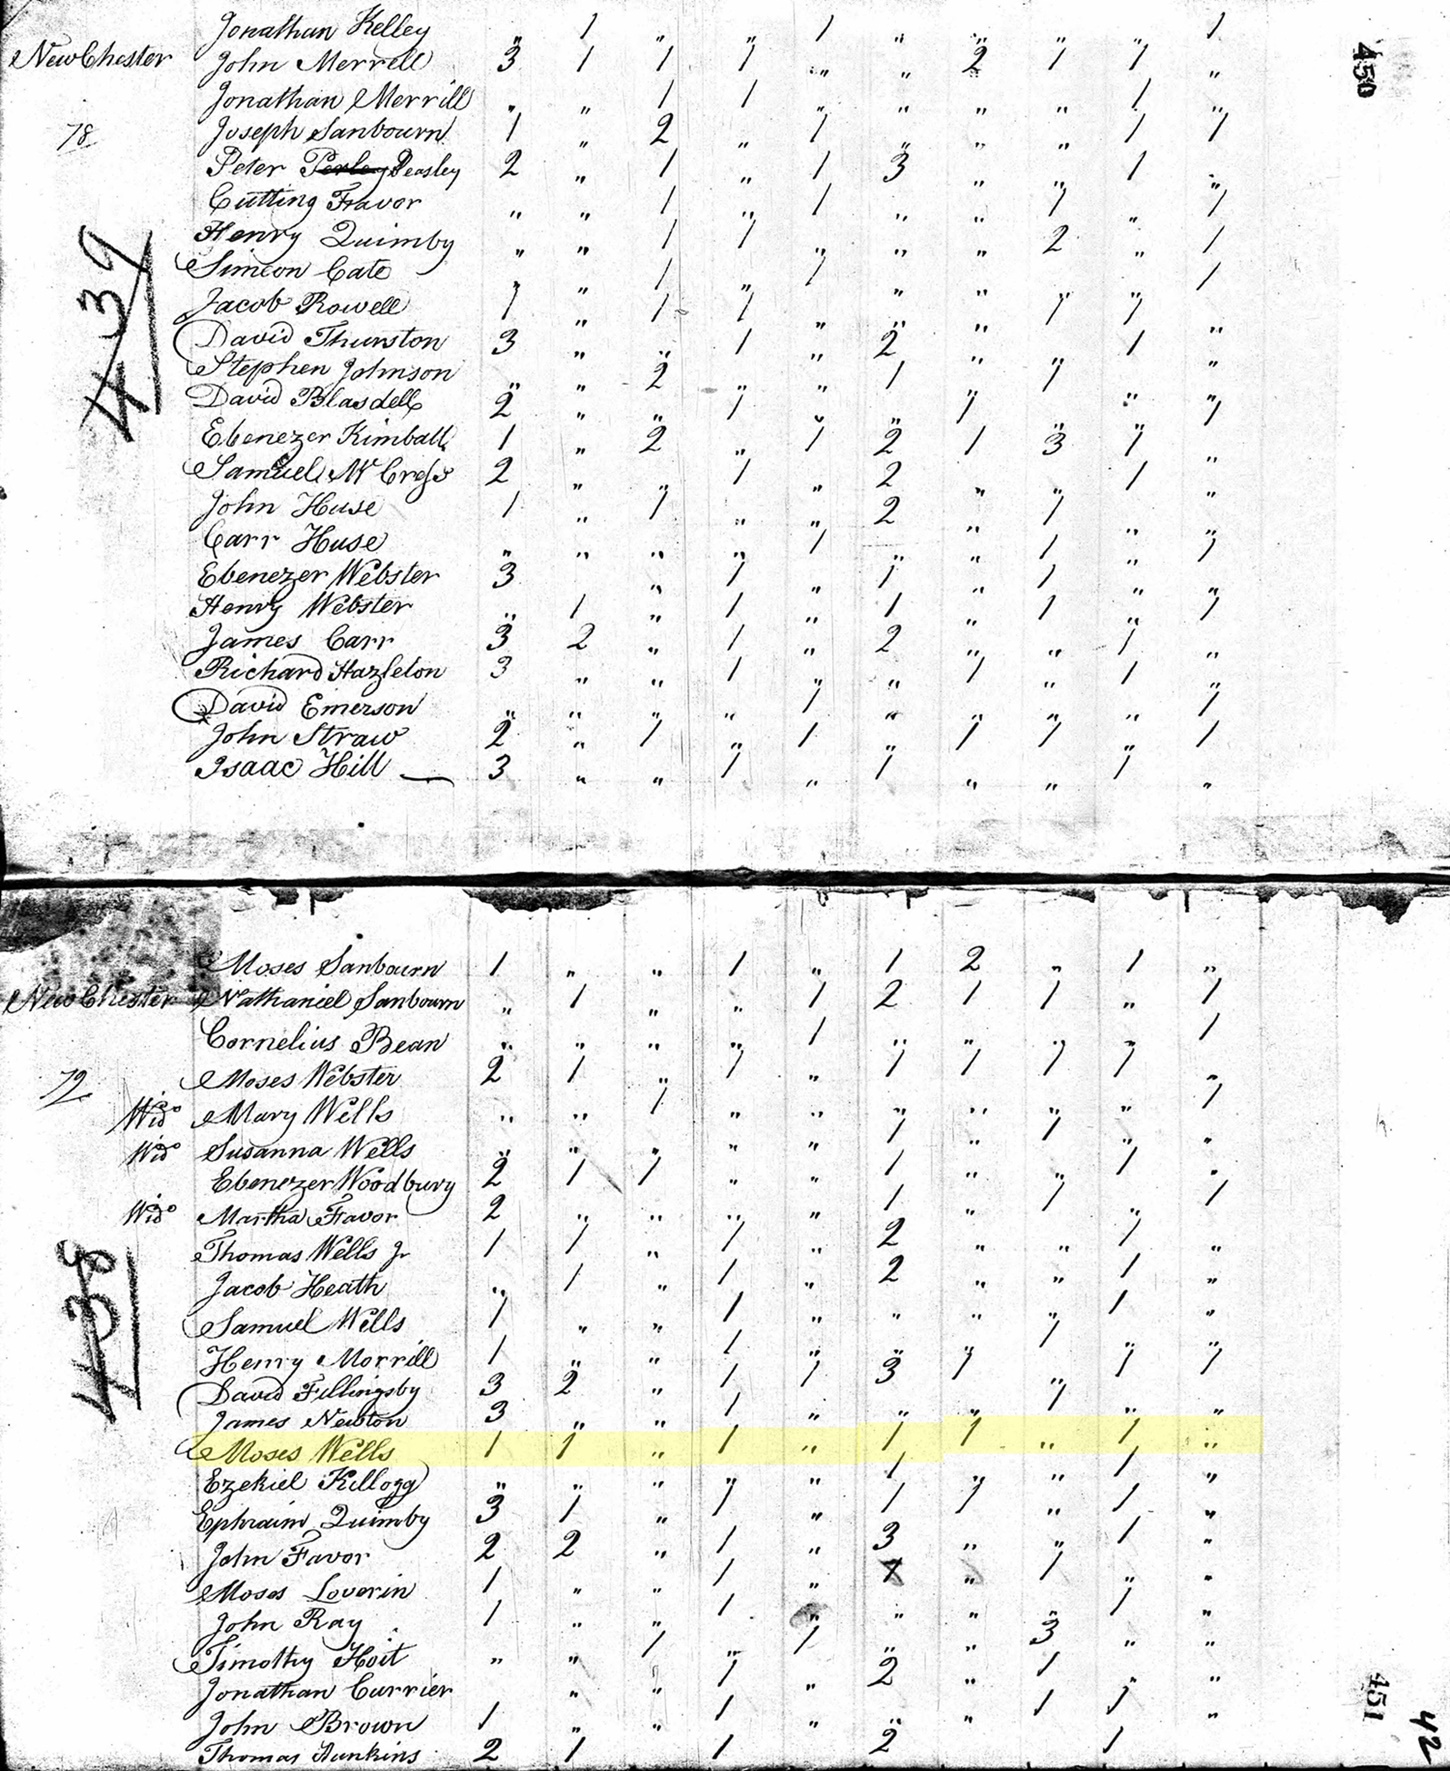 Jonathan Kelley " 1 " " 1 " " " " 1
New Chester John Merrell 3 1 1 1 " " 2 1 1 "
Jonathan Merrill " " 1 1 " " " " 1 "
78 Joseph Sanbourn 1 " 2 " 1 " " " 1 1
Peter Perley Peasley 2 " 1 " 1 3 " " 1 "
Cutting Favor " " 1 " 1 " " 1 " 1
Henry Quimby " " 1 1 " " " 2 " 1
Simeon Cate " " 1 " 1 " " " " 1
Jacob Rowell 1 " 1 1 " " " 1 1 "
David Thurston 3 " " 1 " 2 " " 1 "
Stephen Johnson " " 2 " " 1 " 1 " "
David Blasdell 2 " " 1 " " 1 " " 1
Ebenezer Kimball 1 " 2 " 1 2 1 3 1 "
Samuel 2 " " 1 " 2 " " 1 "
John Huse 1 " 1 " " 2 " 1 " "
Carr Huse " " " " 1 " " 1 " 1
Ebenezer Webster 3 " 1 " 1 " 1 " "
Henry Webster " 1 " 1 " 1 " 1 " 1
James Carr 3 2 " 1 " 2 " " 1 "
Richard Hazleton 3 " " 1 " " 1 " 1 "
David Emerson " " " " 1 " " " " 1
John Straw 2 " 1 " 1 " 1 1 " 1
Isaac Hill 3 " " 1 " 1 " " 1 "
450
439
Moses Sanbourn 1 " " 1 " 1 2 " 1 "
New Chester Nathaniel Sanbourn " 1 " " 1 2 1 1 " 1
Cornelius Bean " " " " 1 " " " " 1
79 Moses Webster 2 1 " 1 " 1 1 1 1 "
Wid° Mary Wells " " 1 " " " " " " 1
Wid° Susanna Wells " " " " " 1 " 1 " "
Ebenezer Woodbury 2 1 1 " " 1 " " 1 "
Wid° Martha Favor 2 " " " " 1 " 1 " 1
Thomas Wells Jr 1 1 " 1 " 2 " " 1 "
Jacob Heath " 1 " 1 " 2 " " 1 "
Samuel Wells 1 " " 1 " " " " 1 "
Henry Morrill 1 " " 1 " " " 1 " "
David Fillingsby 3 2 " 1 1 3 1 " 1 1
James Newton 3 " " 1 " " " 1 " "
Moses Wells 1 1 " 1 " 1 1 " 1 "
Ezekiel Killogg " " " " " 1 " " 1 "
Ephraim Quimby 3 1 " 1 " 1 1 " 1 "
John Favor 2 2 " 1 " 3 " " 1 "
Moses Loverin 1 " " 1 " " 1 " "
John Ray 1 " " 1 " " " " 1 "
Timothy Hoit " " 1 " 1 " " 3 " "
Jonathan Currier " " 1 " 2 " 1 " "
John Brown 1 " " 1 " " " 1 1 "
Thomas 2 1 1 2 1
438
451
42